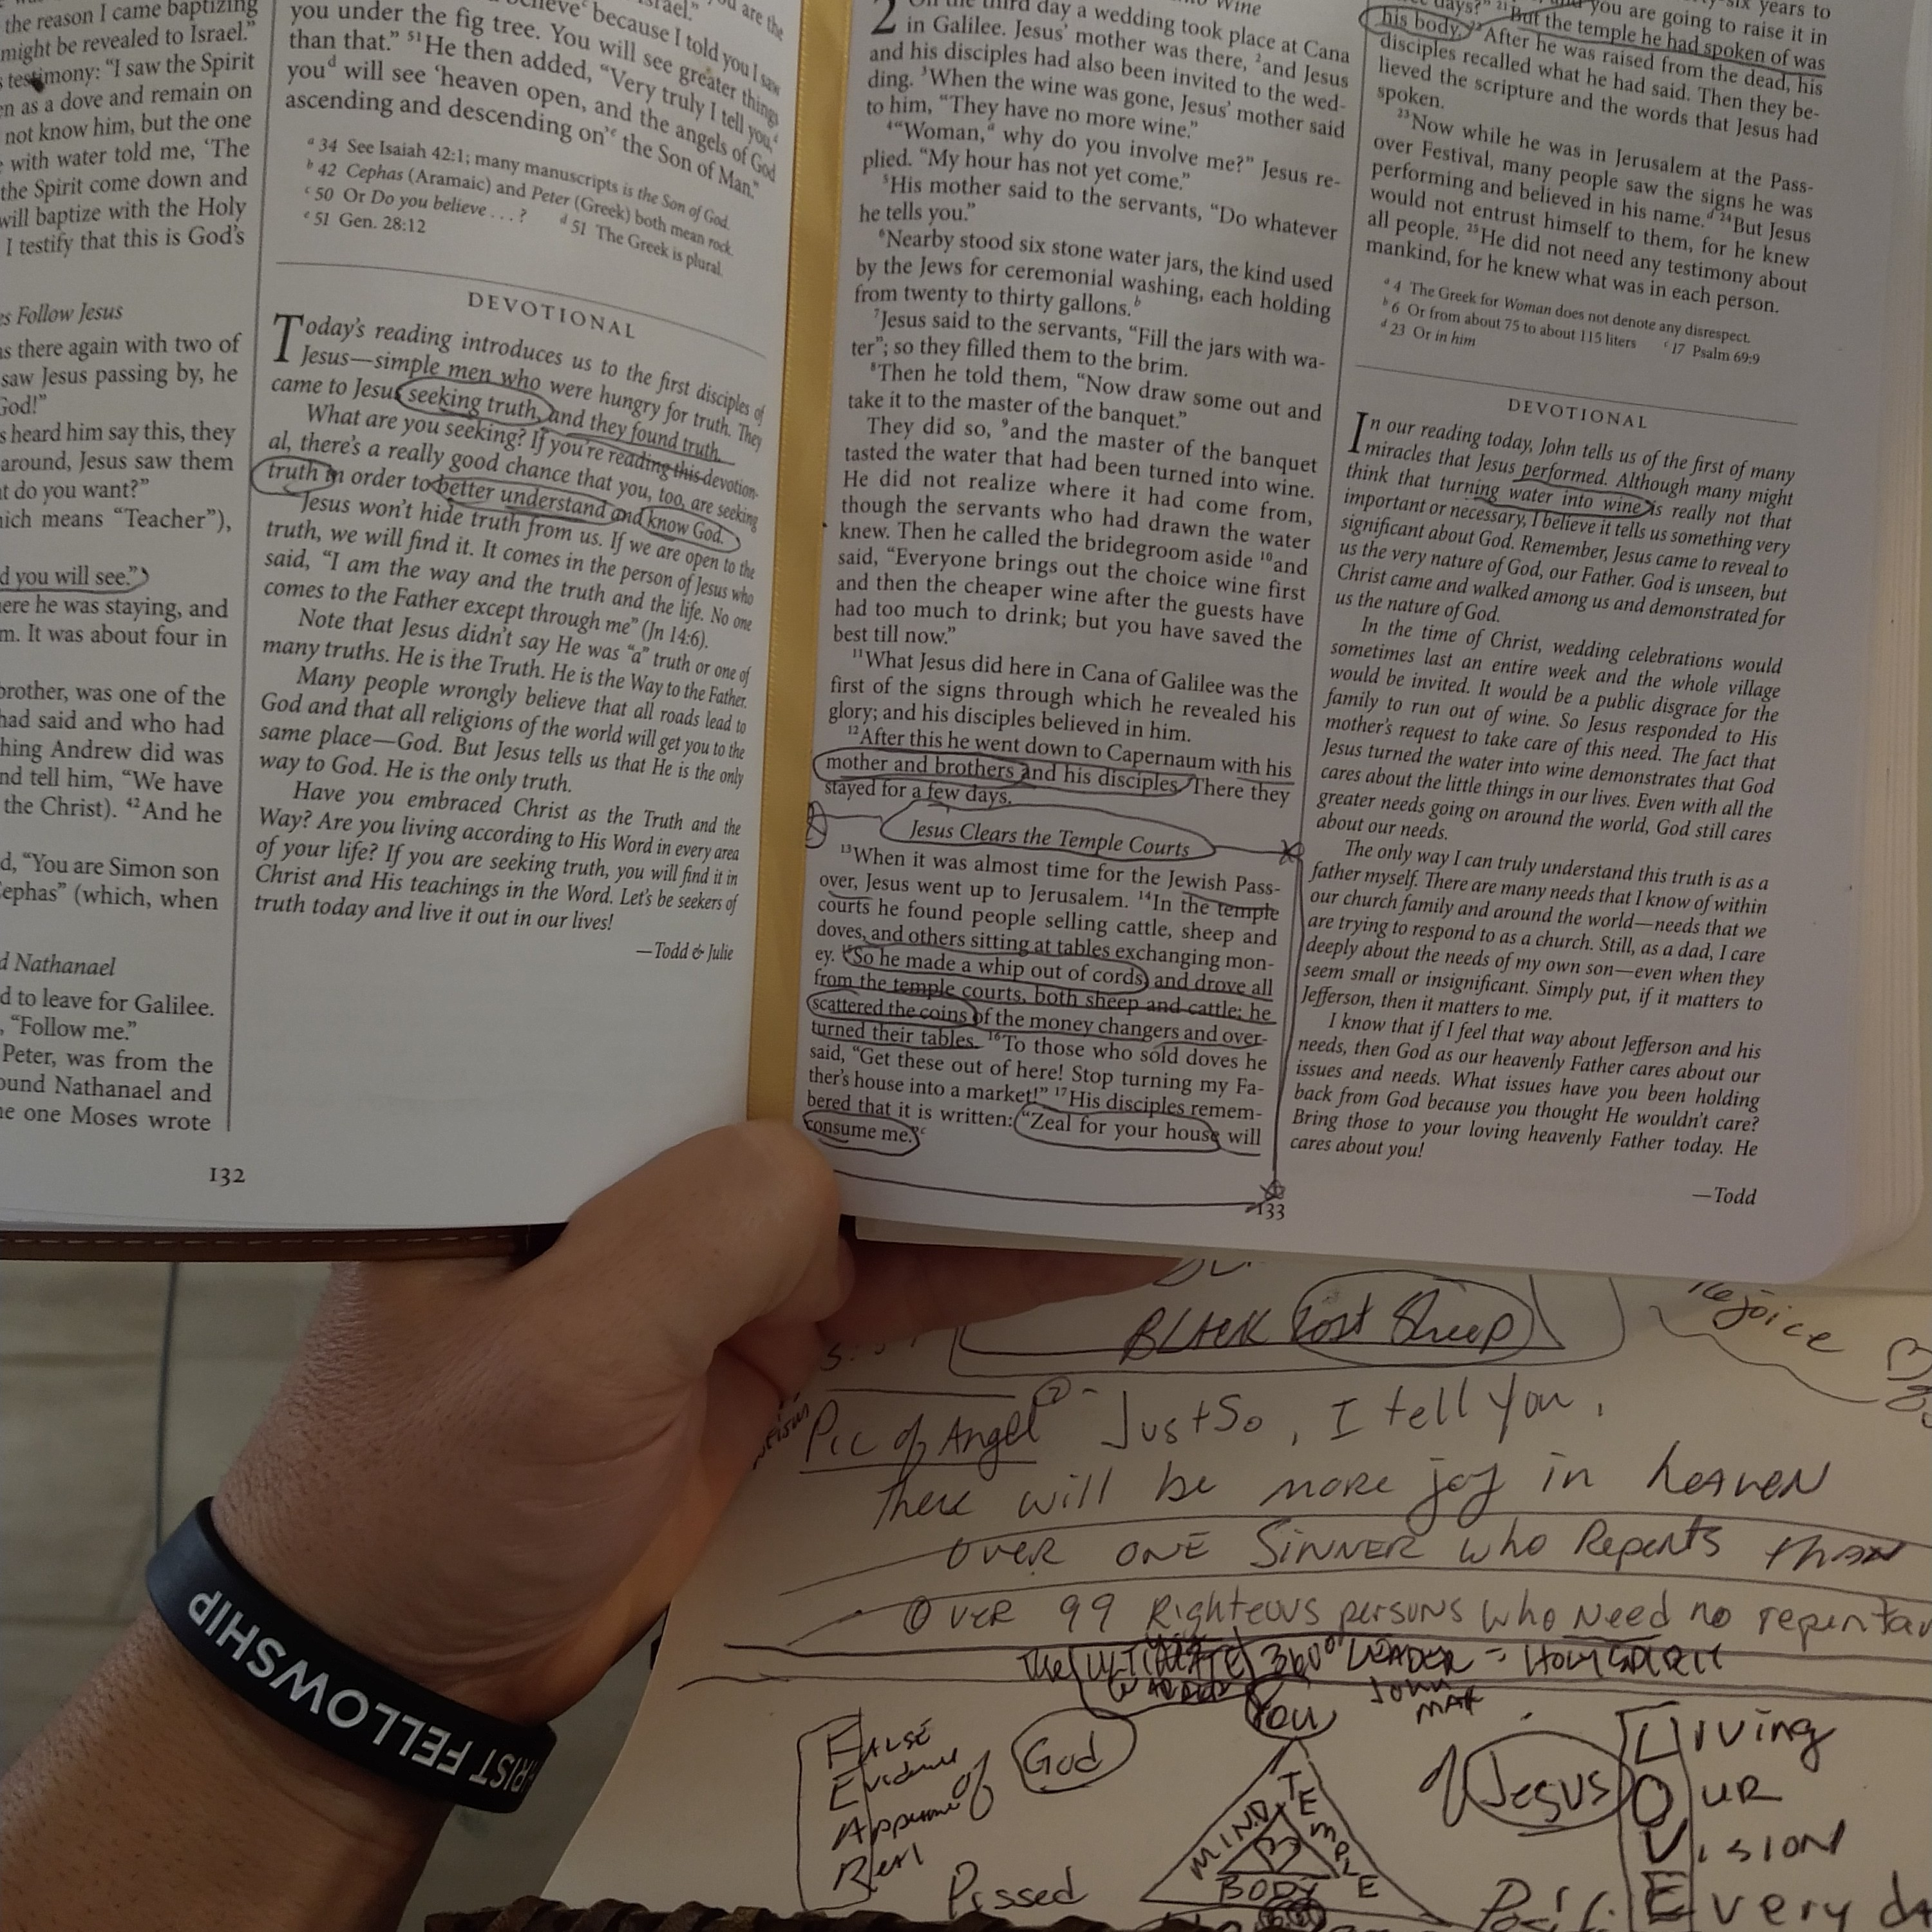 the reason I came baptizing
might be revealed to Israel.”
testimony: “I saw the Spirit
as a dove and remain on
not know him, but the one
with water told me, ‘The
the Spirit come down and
will baptize with the Holy
I testify that this is God’s
Follow Jesus
there again with two of
saw Jesus passing by, he
God!”
heard him say this, they
around, Jesus saw them
do you want?”
means “Teacher”),
you will see.”
he was staying, and
It was about four in
brother, was one of the
had said and who had
thing Andrew did was
tell him, “We have
the Christ). 42And he
“You are Simon son
Cephas” (which, when
Nathanael
to leave for Galilee.
“Follow me.”
Peter, was from the
found Nathanael and
one Moses wrote
are the
because I told you I saw
you under the fig tree. You will see greater things
than that.” 51He then added, “Very truly I tell you,d
youd will see ‘heaven open, and the angels of God
ascending and descending on’e the Son of Man.”
a 34 See Isaiah 42:1; many manuscripts is the Son of God.
b 42 Cephas (Aramaic) and Peter (Greek) both mean rock.
c 50 Or Do you believe . . . ? d 51 The Greek is plural.
e 51 Gen. 28:12
DEVOTIONAL
Today’s reading introduces us to the first disciples of
Jesus—simple men who were hungry for truth. They
came to Jesus seeking truth, and they found truth.
What are you seeking? If you’re reading this devotion-
al, there’s a really good chance that you, too, are seeking
truth in order to better understand and know God.
Jesus won’t hide truth from us. If we are open to the
truth, we will find it. It comes in the person of Jesus who
said, “I am the way and the truth and the life. No one
comes to the Father except through me” (Jn 14:6).
Note that Jesus didn’t say He was “a” truth or one of
many truths. He is the Truth. He is the Way to the Father.
Many people wrongly believe that all roads lead to
God and that all religions of the world will get you to the
same place—God. But Jesus tells us that He is the only
way to God. He is the only truth.
Have you embraced Christ as the Truth and the
Way? Are you living according to His Word in every area
of your life? If you are seeking truth, you will find it in
Christ and His teachings in the Word. Let’s be seekers of
truth today and live it out in our lives!
—Todd & Julie
132
Wine
2 On the third day a wedding took place at Cana
in Galilee. Jesus’ mother was there, 2and Jesus
and his disciples had also been invited to the wed-
ding. 3When the wine was gone, Jesus’ mother said
to him, “They have no more wine.”
4“Woman,a why do you involve me?” Jesus re-
plied. “My hour has not yet come.”
5His mother said to the servants, “Do whatever
he tells you.”
6Nearby stood six stone water jars, the kind used
by the Jews for ceremonial washing, each holding
from twenty to thirty gallons.b
7Jesus said to the servants, “Fill the jars with wa-
ter”; so they filled them to the brim.
8Then he told them, “Now draw some out and
take it to the master of the banquet.”
They did so, 9and the master of the banquet
tasted the water that had been turned into wine.
He did not realize where it had come from,
though the servants who had drawn the water
knew. Then he called the bridegroom aside 10and
said, “Everyone brings out the choice wine first
and then the cheaper wine after the guests have
had too much to drink; but you have saved the
best till now.”
11What Jesus did here in Cana of Galilee was the
first of the signs through which he revealed his
glory; and his disciples believed in him.
12After this he went down to Capernaum with his
mother and brothers and his disciples. There they
stayed for a few days.
Jesus Clears the Temple Courts
13When it was almost time for the Jewish Pass-
over, Jesus went up to Jerusalem. 14In the temple
courts he found people selling cattle, sheep and
doves, and others sitting at tables exchanging mon-
ey. 15So he made a whip out of cords, and drove all
from the temple courts, both sheep and cattle; he
scattered the coins of the money changers and over-
turned their tables. 16To those who sold doves he
said, “Get these out of here! Stop turning my Fa-
ther’s house into a market!” 17His disciples remem-
bered that it is written: “Zeal for your house will
consume me.”c
133
years to
days?” 21But the temple he had spoken of was
you are going to raise it in
his body. 22After he was raised from the dead, his
disciples recalled what he had said. Then they be-
lieved the scripture and the words that Jesus had
spoken.
23Now while he was in Jerusalem at the Pass-
over Festival, many people saw the signs he was
performing and believed in his name.d 24But Jesus
would not entrust himself to them, for he knew
all people. 25He did not need any testimony about
mankind, for he knew what was in each person.
a 4 The Greek for Woman does not denote any disrespect.
b 6 Or from about 75 to about 115 liters c 17 Psalm 69:9
d 23 Or in him
DEVOTIONAL
In our reading today, John tells us of the first of many
miracles that Jesus performed. Although many might
think that turning water into wine is really not that
important or necessary, I believe it tells us something very
significant about God. Remember, Jesus came to reveal to
us the very nature of God, our Father. God is unseen, but
Christ came and walked among us and demonstrated for
us the nature of God.
In the time of Christ, wedding celebrations would
sometimes last an entire week and the whole village
would be invited. It would be a public disgrace for the
family to run out of wine. So Jesus responded to His
mother’s request to take care of this need. The fact that
Jesus turned the water into wine demonstrates that God
cares about the little things in our lives. Even with all the
greater needs going on around the world, God still cares
about our needs.
The only way I can truly understand this truth is as a
father myself. There are many needs that I know of within
our church family and around the world—needs that we
are trying to respond to as a church. Still, as a dad, I care
deeply about the needs of my own son—even when they
seem small or insignificant. Simply put, if it matters to
Jefferson, then it matters to me.
I know that if I feel that way about Jefferson and his
needs, then God as our heavenly Father cares about our
issues and needs. What issues have you been holding
back from God because you thought He wouldn’t care?
Bring those to your loving heavenly Father today. He
cares about you!
—Todd
FELLOWSHIP
BLACK Lost Sheep
Rejoice
Pic of Angel
Just So, I tell You,
There will be more joy in heaven
OVER ONE SINNER who Repents than
OVER 99 Righteous persons who Need no
The ULTIMATE 360° LEADER = HOLY SPIRIT
John
You
FALSE
Evidence
Real
of
God
MIND
TEMPLE
BODY
of
Jesus
Living
OUR
VISION
Every
Pissed